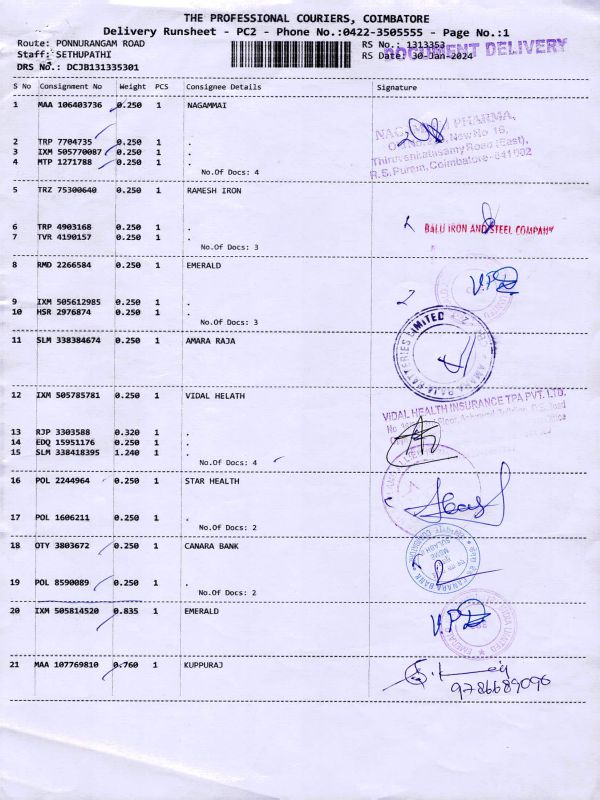 THE PROFESSIONAL COURIERS, COIMBATORE
Delivery Runsheet - PC2 - Phone No.:0422-3505555 - Page No.:1
Route: PONNURANGAM ROAD RS No.: 1313353
DOCUMENT DELIVERY
Staff: SETHUPATHI RS Date: 30-Jan-2024
DRS No.: DCJB131335301
S No Consignment No Weight PCS Consignee Details Signature
1 MAA 106403736 0.250 1 NAGAMMAI
PHARMA,
New No 16,
Thiruvenkatasamy Road (East),
R.S. Puram, Coimbatore-641 002
2 TRP 7704735 0.250 1 .
3 IXM 505770087 0.250 1 .
4 MTP 1271788 0.250 1 .
No.Of Docs: 4
5 TRZ 75300640 0.250 1 RAMESH IRON
BALU IRON AND STEEL COMPANY
6 TRP 4903168 0.250 1 .
7 TVR 4190157 0.250 1 .
No.Of Docs: 3
8 RMD 2266584 0.250 1 EMERALD
9 IXM 505612985 0.250 1 .
10 HSR 2976874 0.250 1 .
No.Of Docs: 3
11 SLM 338384674 0.250 1 AMARA RAJA
LIMITED
12 IXM 505785781 0.250 1 VIDAL HELATH
VIDAL HEALTH INSURANCE TPA PVT. LTD.
13 RJP 3303588 0.320 1 .
14 EDQ 15951176 0.250 1 .
15 SLM 338418395 1.240 1 .
No.Of Docs: 4
16 POL 2244964 0.250 1 STAR HEALTH
17 POL 1606211 0.250 1 .
No.Of Docs: 2
18 OTY 3803672 0.250 1 CANARA BANK
CANARA BANK
19 POL 8590089 0.250 1 .
No.Of Docs: 2
20 IXM 505814520 0.835 1 EMERALD
21 MAA 107769810 0.760 1 KUPPURAJ
9786689096